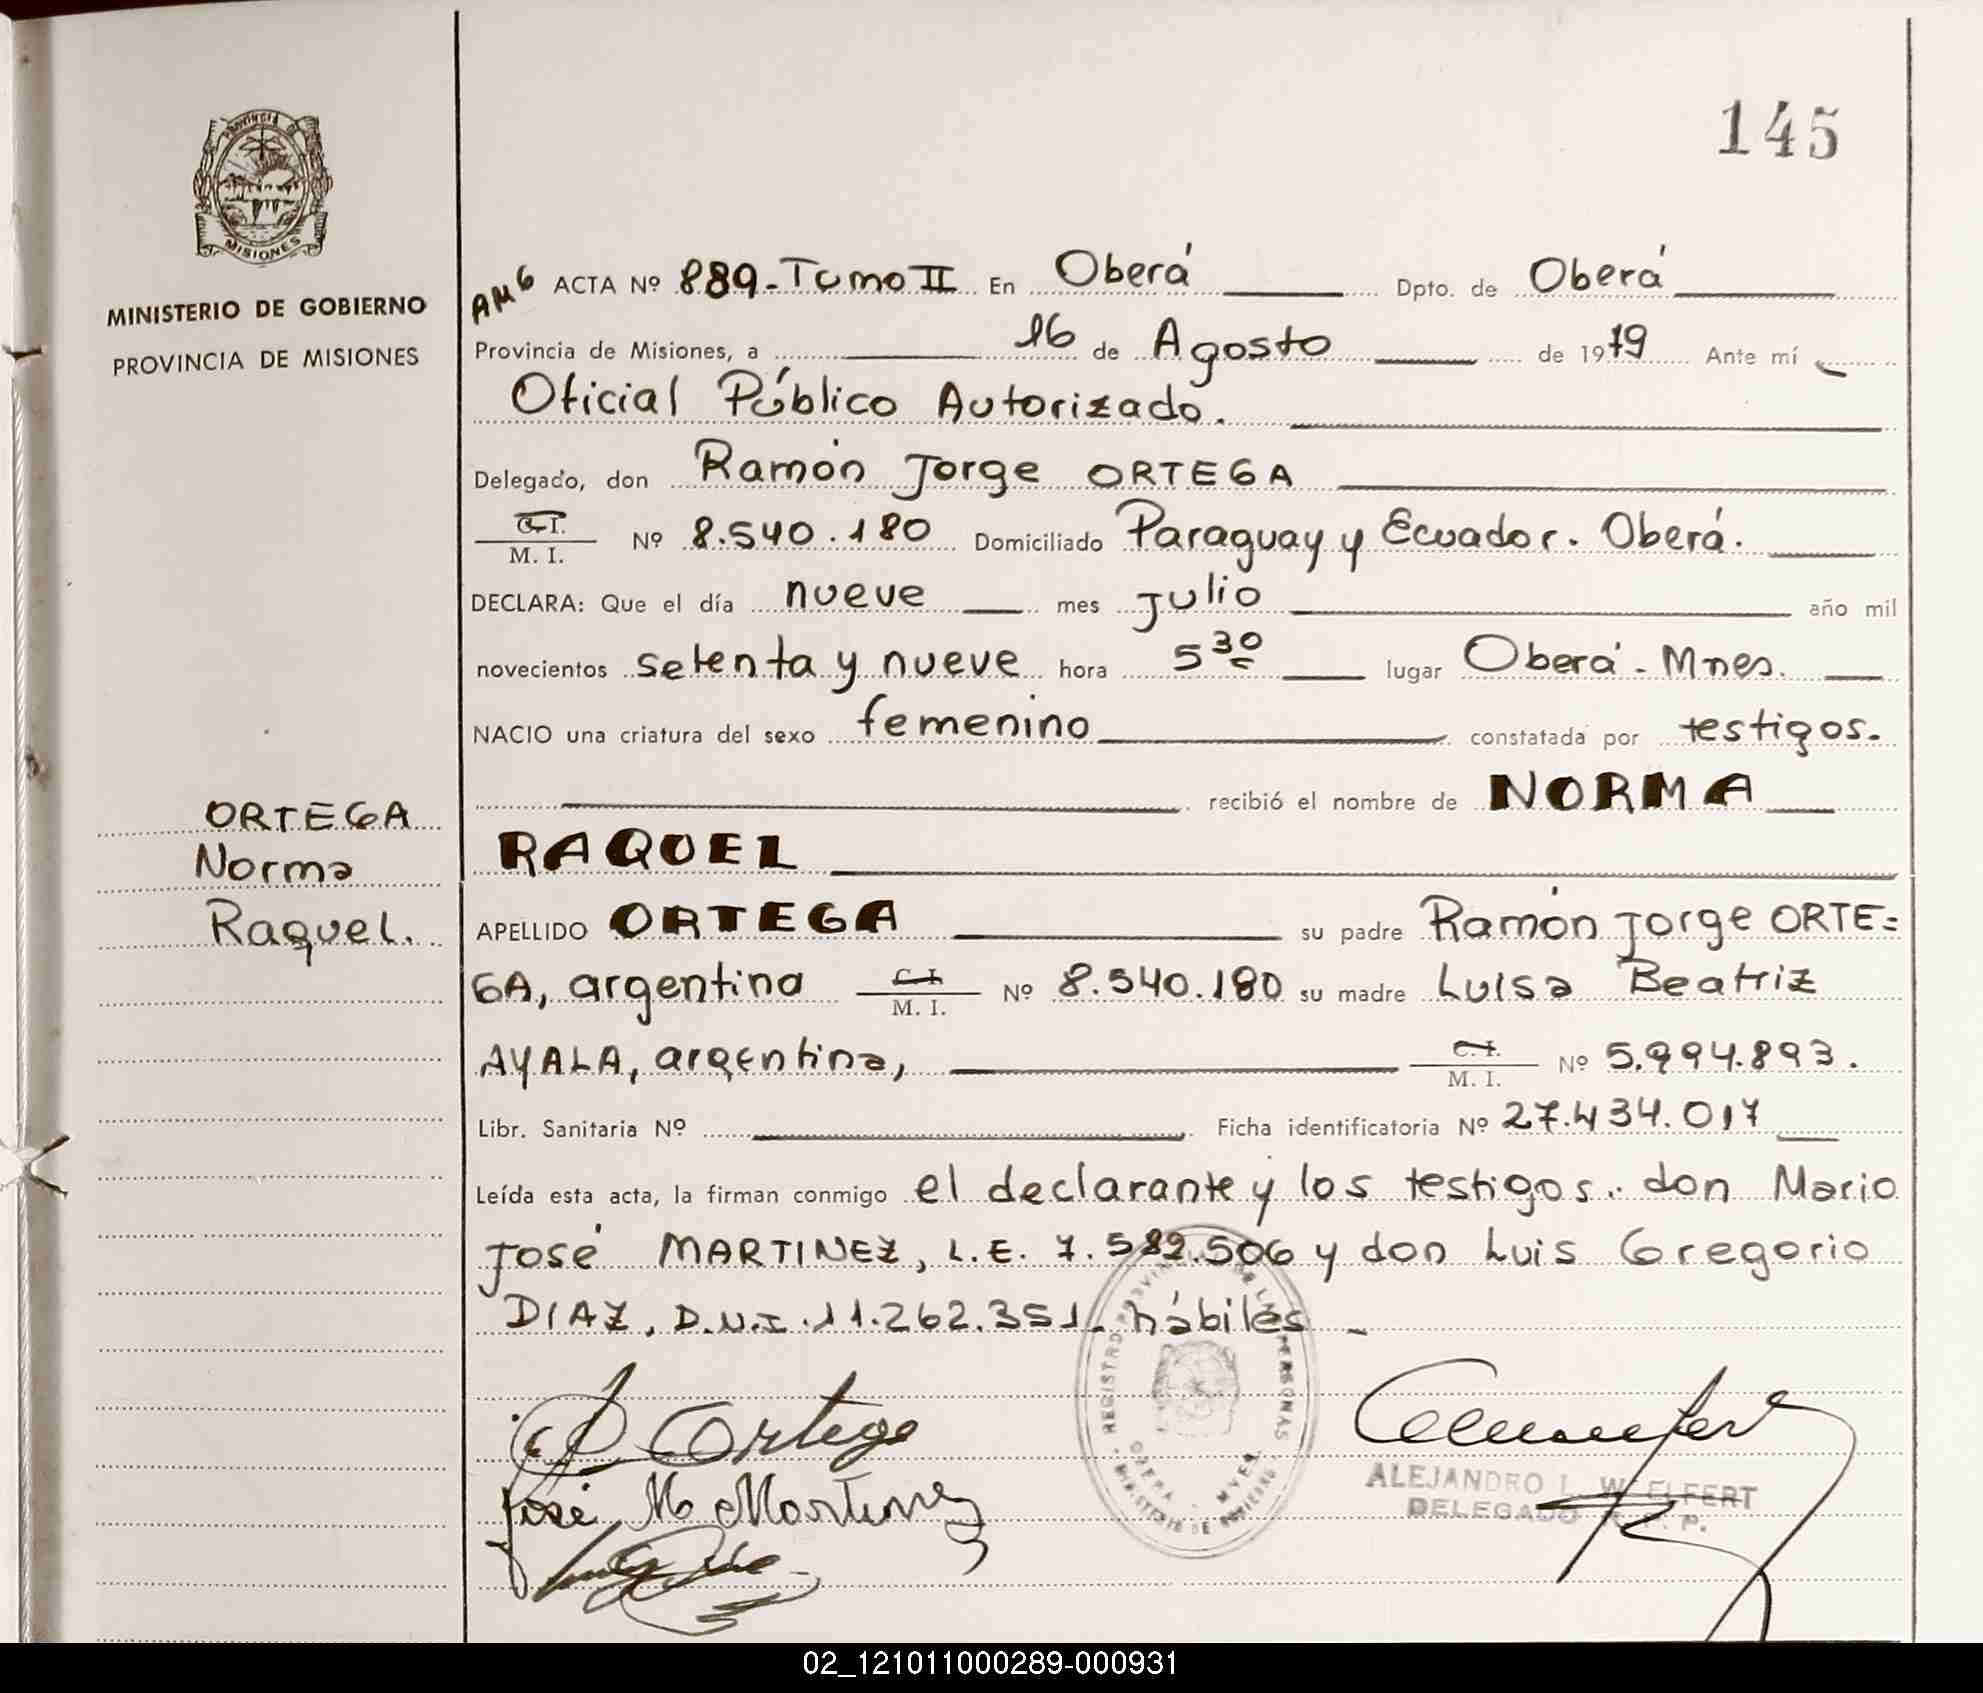 145
PROVINCIA DE
MISIONES
MINISTERIO DE GOBIERNO
PROVINCIA DE MISIONES
AMG ACTA Nº 889-Tomo II En Oberá Dpto. de Oberá
Provincia de Misiones, a 16 de Agosto de 1979 Ante mí
Oficial Público Autorizado.
Delegado, don Ramón Jorge ORTEGA
C.I.
M. I. Nº 8.540.180 Domiciliado Paraguay y Ecuador. Oberá.
DECLARA: Que el día nueve mes Julio año mil
novecientos setenta y nueve hora 5 30 lugar Oberá - Mnes.
NACIO una criatura del sexo femenino constatada por testigos.
recibió el nombre de NORMA
RAQUEL
ORTEGA
Norma
Raquel.
APELLIDO ORTEGA su padre Ramón Jorge ORTE=
GA, argentina C.I. M. I. Nº 8.540.180 su madre Luisa Beatriz
AYALA, argentina, C.I. M. I. Nº 5.994.893.
Libr. Sanitaria Nº Ficha identificatoria Nº 27.434.017
Leída esta acta, la firman conmigo el declarante y los testigos. don Mario
José MARTINEZ, L.E. 7.582.506 y don Luis Gregorio
DIAZ, D.N.I. 11.262.351. hábiles
Ortega
José M Martinez
REGISTRO PROVINCIAL DE LAS PERSONAS
OBERA - MNES.
MINISTERIO DE GOBIERNO
ALEJANDRO L. WELFERT
DELEGADO R. P. P.
02_121011000289-000931